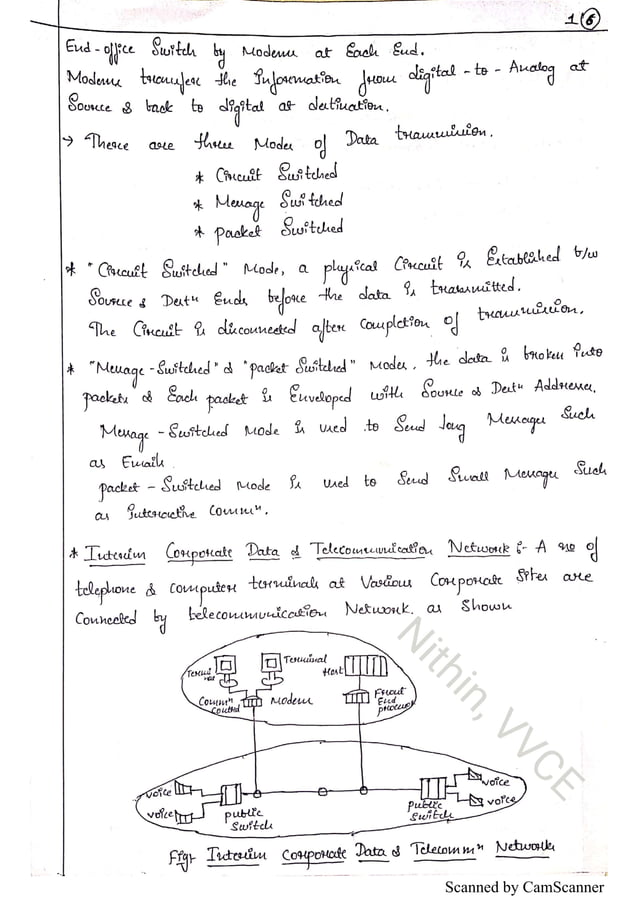 1 6
End-office Switch by Modems at Each End.
Modems transfer the Information from digital-to-Analog at
Source & back to digital at destination.
→ There are three Modes of Data transmission.
* Circuit Switched
* Message Switched
* packet Switched
* "Circuit Switched" Mode, a physical Circuit is Established b/w
Source & Destn Ends before the data is transmitted.
The Circuit is disconnected after Completion of transmission.
* "Message-Switched" & "packet Switched" Modes, the data is broken into
packets & Each packet is Enveloped with Source & Destn Addresses.
Message-Switched Mode is used to Send long Messages Such
as Emails.
packet-Switched Mode is used to Send Small Messages Such
as interactive Commn.
* Interim Corporate Data & Telecommunication Network :- A no of
telephone & computer terminals at Various Corporate Sites are
Connected by telecommunication Network. as Shown
Terminal
Terminal
Host
Commn Control
Modem
Front End processor
voice
voice
public Switch
public Switch
voice
voice
Fig:- Interim Corporate Data & Telecommn Network
Nithin, VVCE
Scanned by CamScanner